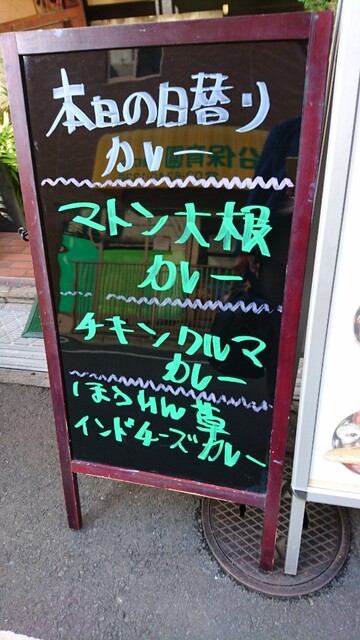 本日の日替り
カレー
マトン大根
カレー
チキンクルマ
カレー
ほうれん草
インドチーズカレー
谷保育園